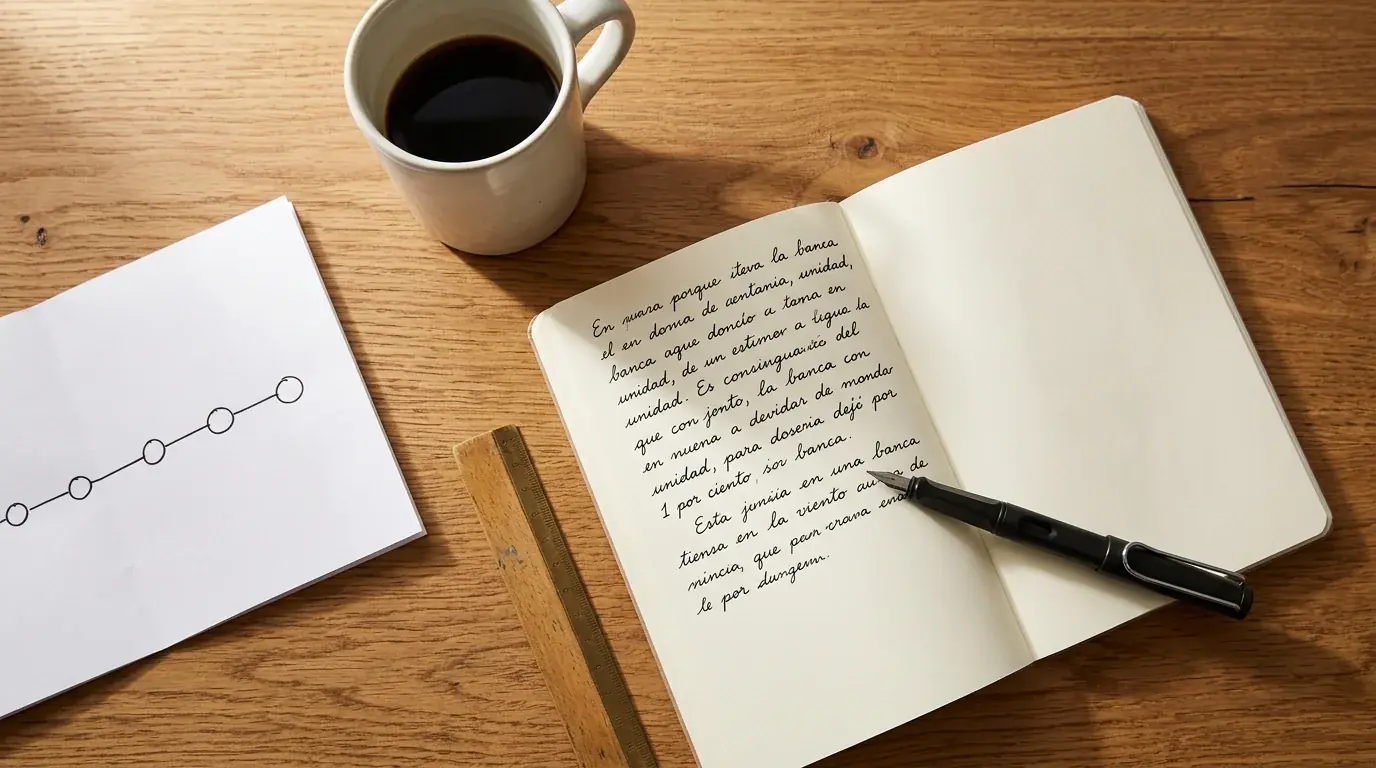 En porque iteva la banca
el en doma de aentania, unidad,
banca aque doncio a tama en
unidad, de un estimer a ligua la
unidad. Es consinguaicó del
que con jento, la banca con
en nuena a devidar de monda
unidad, para doseria dejé por
1 por ciento, sor banca.
Esta en una banca
tiensa en la viento de
nincia, que crana
le por dungeun.